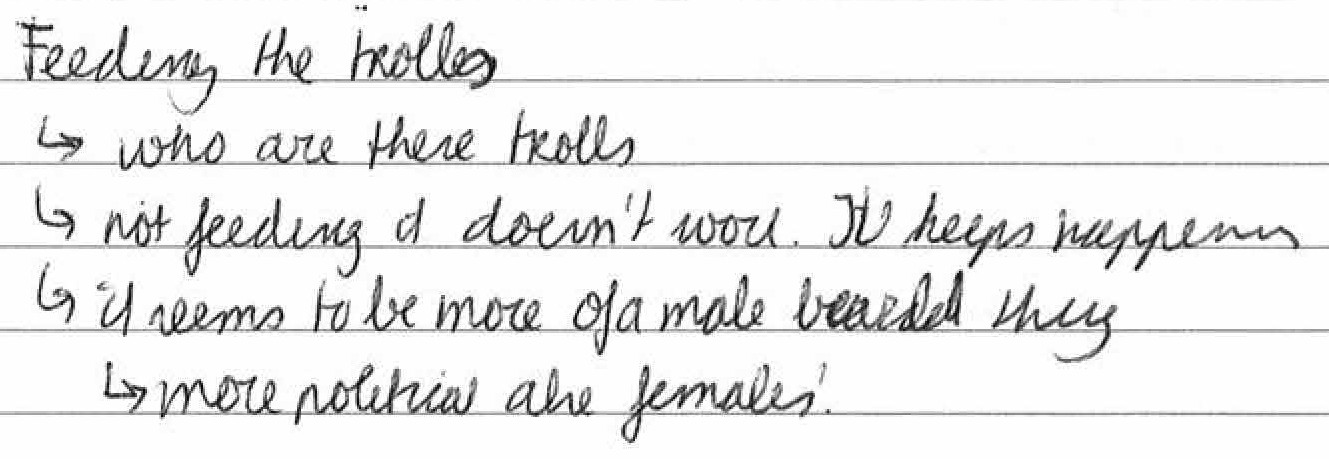 Feeding the trolles
↳ who are these trolls
↳ not feeding it doesn't work. It keeps happening
↳ it seems to be more of a male thing
↳ more political are females.